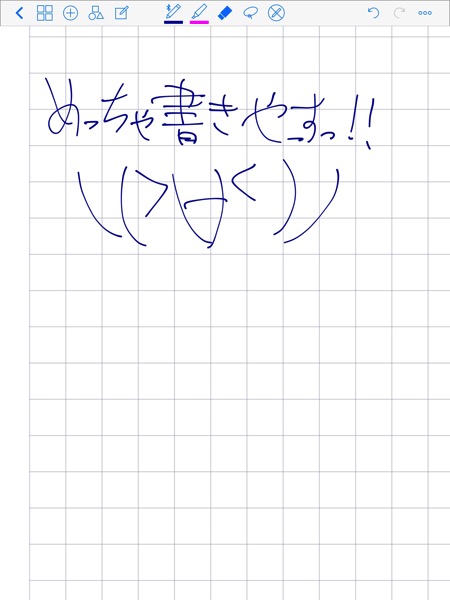 めっちゃ書きやすっ!!
\(>∀<)/